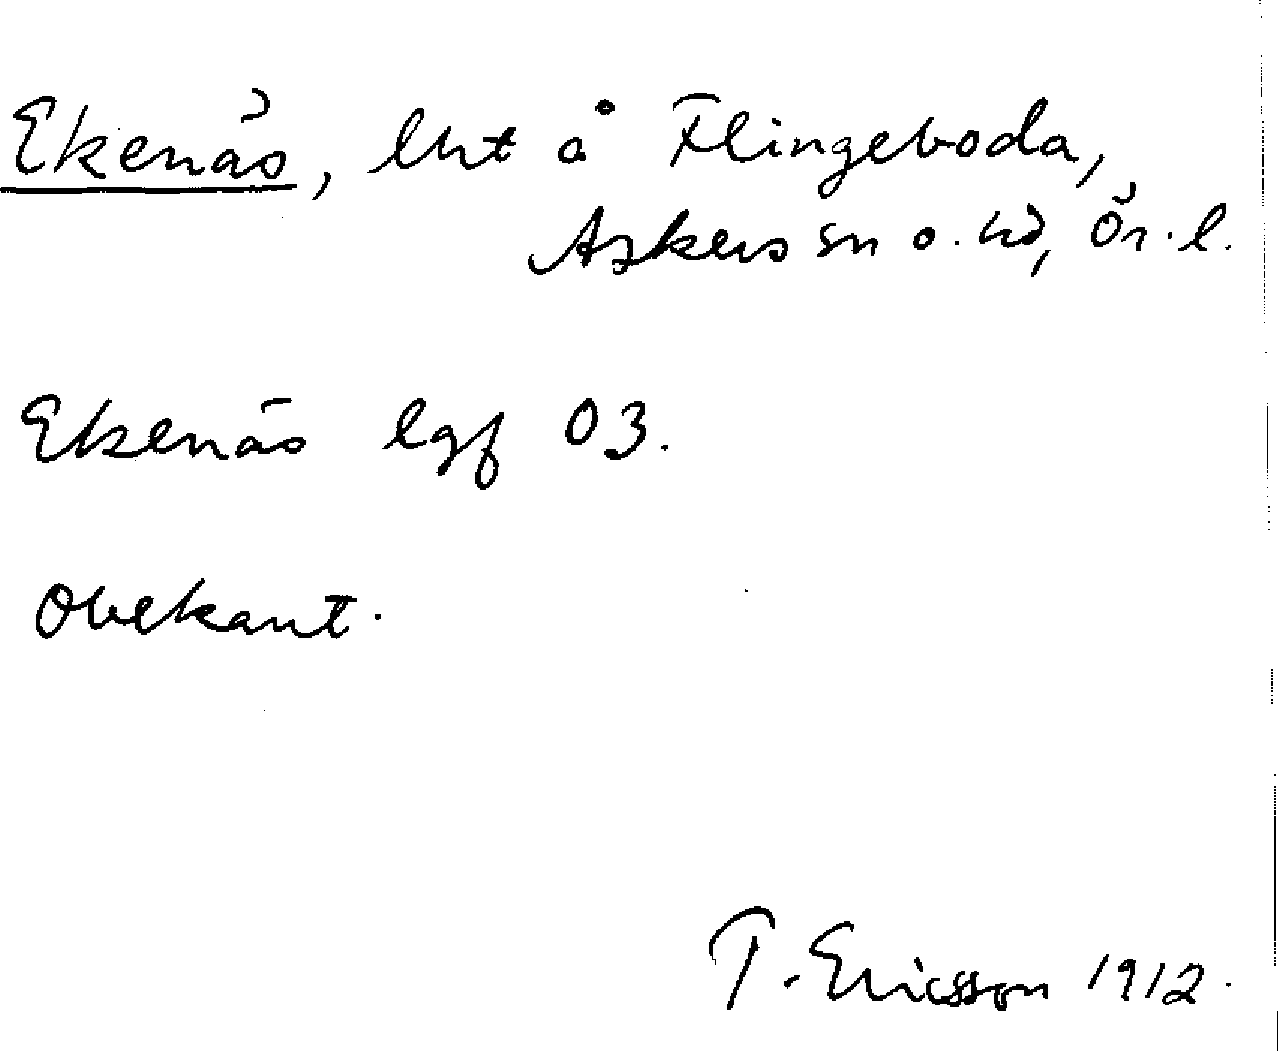 Ekenäs, lht å Flingeboda,
Askers sn o. hd, Ör. l.
Ekenäs lgf 03.
Obekant.
T. Ericsson 1912.